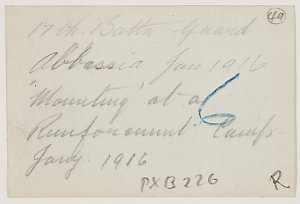 49
17th. Battn Guard
Abbassia Jan 1916
"Mounting" at a
Reinforcement Camp
Jany. 1916
PXB 226
R